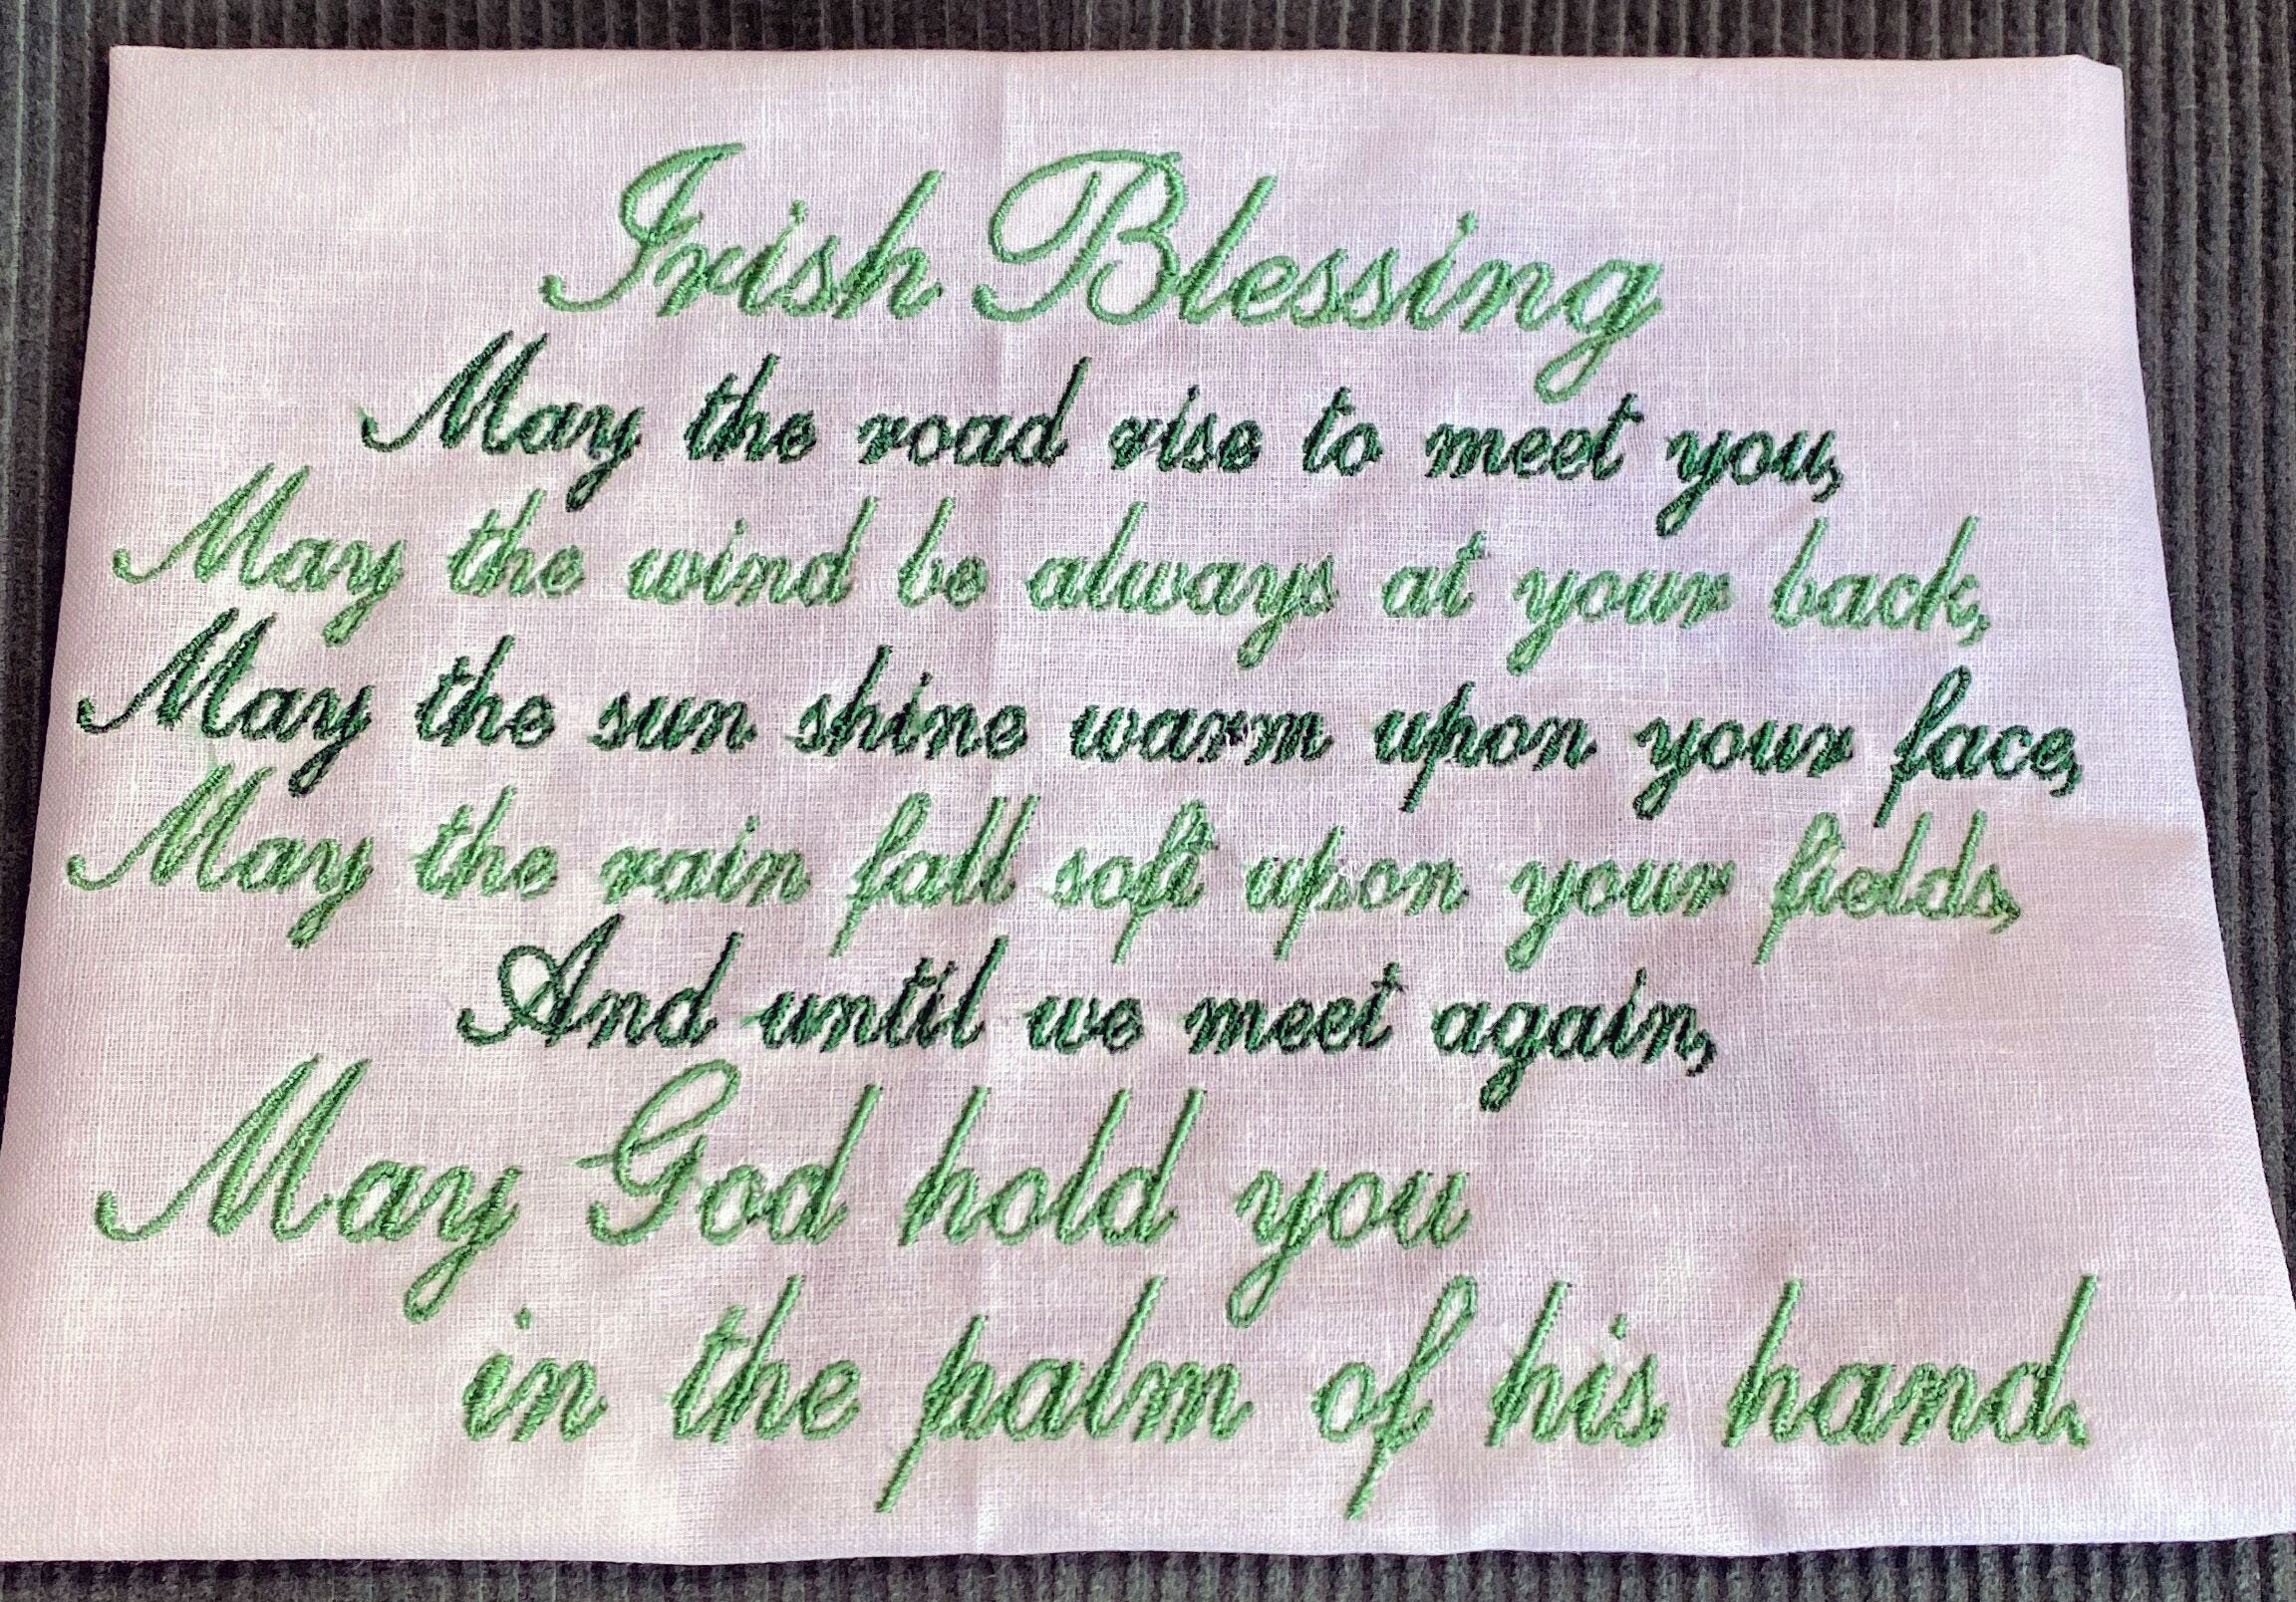 Irish Blessing
May the road rise to meet you,
May the wind be always at your back,
May the sun shine warm upon your face,
May the rain fall soft upon your fields,
And until we meet again,
May God hold you
in the palm of his hand.